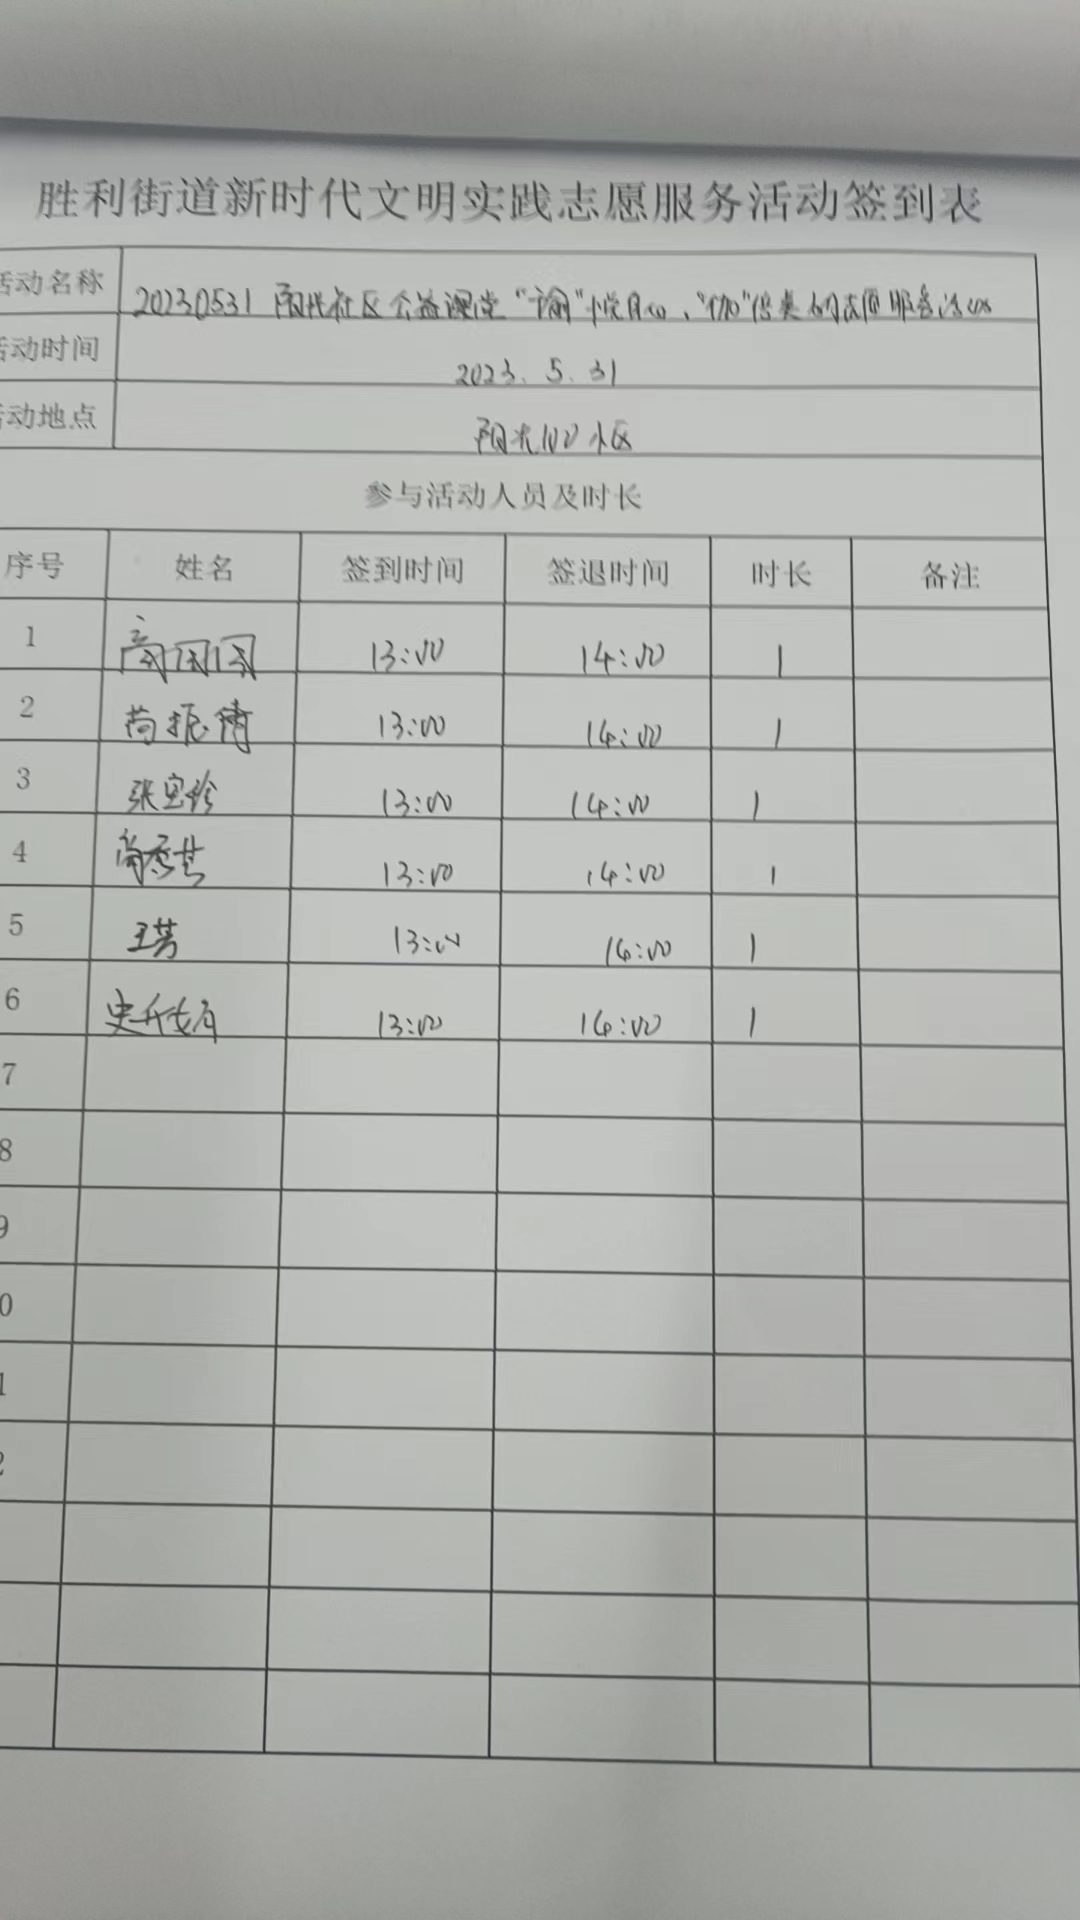 胜利街道新时代文明实践志愿服务活动签到表
活动名称 20230531 阳光社区公益课堂“瑜”悦身心、“伽”倍美的志愿服务活动
活动时间 2023. 5. 31
活动地点 阳光100小区
参与活动人员及时长
序号 姓名 签到时间 签退时间 时长 备注
1 高团团 13:00 14:00 1
2 13:00 14:00 1
3 张宝珍 13:00 14:00 1
4 13:00 14:00 1
5 王芳 13:00 14:00 1
6 13:00 14:00 1
7
8
9
0
1
2